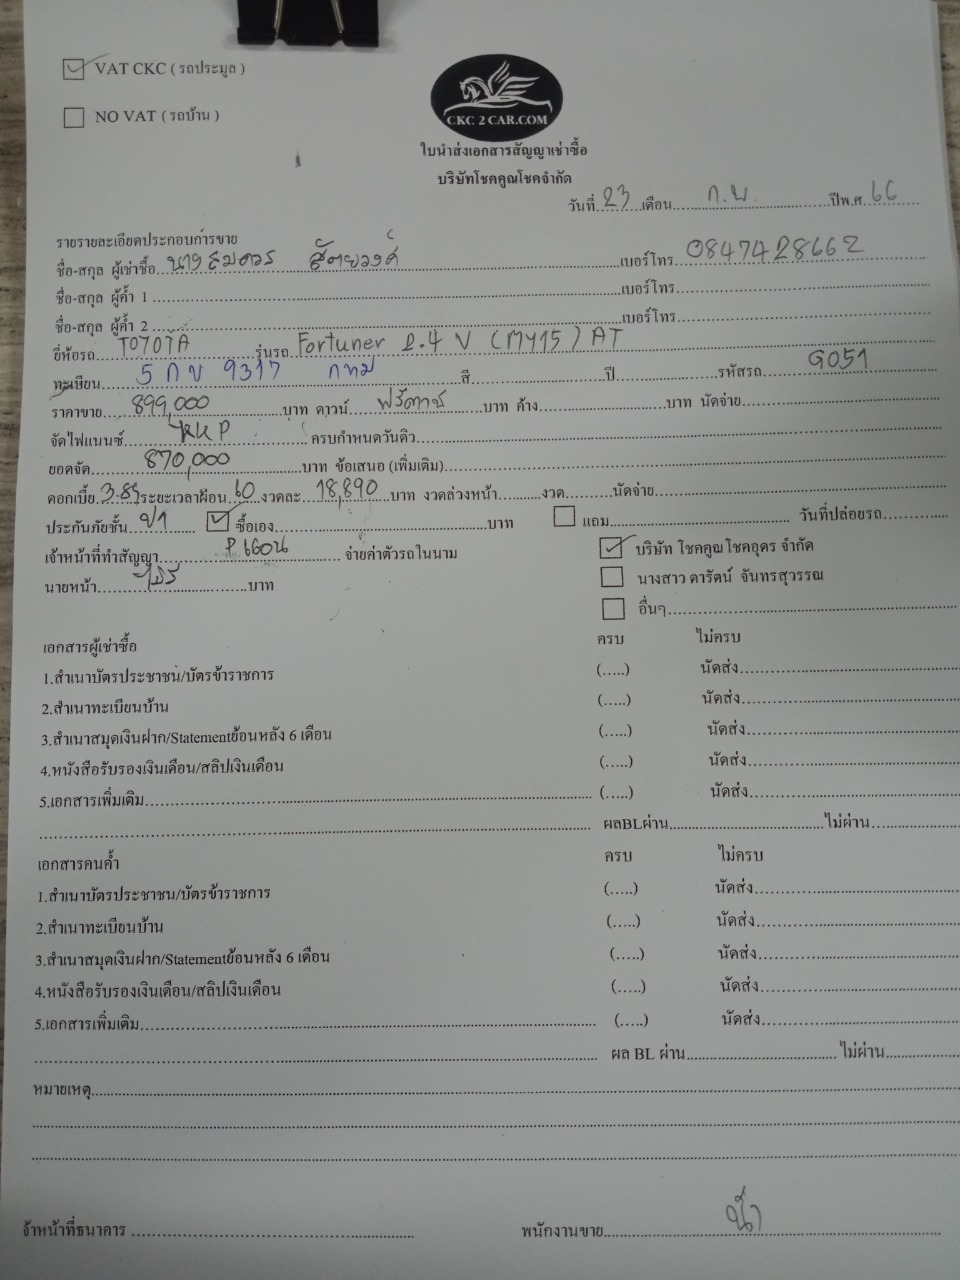 VAT CKC ( รถประมูล )
NO VAT ( รถบ้าน )
CKC 2 CAR.COM
ใบนำส่งเอกสารสัญญาเช่าซื้อ
บริษัทโชคคูณโชคจำกัด
วันที่ 23 เดือน ก.พ. ปีพ.ศ. 66
รายรายละเอียดประกอบการขาย
ชื่อ-สกุล ผู้เช่าซื้อ นางสมควร สัตยวงค์ เบอร์โทร 0847428662
ชื่อ-สกุล ผู้ค้ำ 1 เบอร์โทร
ชื่อ-สกุล ผู้ค้ำ 2 เบอร์โทร
ยี่ห้อรถ TOYOTA รุ่นรถ Fortuner 2.4 V (MY15) AT
ทะเบียน 5 กข 9317 กทม สี ปี รหัสรถ G051
ราคาขาย 899,000 บาท ดาวน์ ฟรีดาวน์ บาท ค้าง บาท นัดจ่าย
จัดไฟแนนซ์ KKP ครบกำหนดวันคิว
ยอดจัด 870,000 บาท ข้อเสนอ (เพิ่มเติม)
ดอกเบี้ย ระยะเวลาผ่อน 60 งวดละ 18,890 บาท งวดล่วงหน้า งวด นัดจ่าย
ประกันภัยชั้น ป1 ซื้อเอง บาท แถม วันที่ปล่อยรถ
เจ้าหน้าที่ทำสัญญา จ่ายค่าตัวรถในนาม บริษัท โชคคูณโชคอุดร จำกัด
นายหน้า ไม่มี บาท นางสาว ดารัตน์ จันทรสุวรรณ
อื่นๆ
เอกสารผู้เช่าซื้อ ครบ ไม่ครบ
1.สำเนาบัตรประชาชน/บัตรข้าราชการ (.....) นัดส่ง
2.สำเนาทะเบียนบ้าน (.....) นัดส่ง
3.สำเนาสมุดเงินฝาก/Statementย้อนหลัง 6 เดือน (.....) นัดส่ง
4.หนังสือรับรองเงินเดือน/สลิปเงินเดือน (.....) นัดส่ง
5.เอกสารเพิ่มเติม (.....) นัดส่ง
ผลBLผ่าน ไม่ผ่าน
เอกสารคนค้ำ ครบ ไม่ครบ
1.สำเนาบัตรประชาชน/บัตรข้าราชการ (.....) นัดส่ง
2.สำเนาทะเบียนบ้าน (.....) นัดส่ง
3.สำเนาสมุดเงินฝาก/Statementย้อนหลัง 6 เดือน (.....) นัดส่ง
4.หนังสือรับรองเงินเดือน/สลิปเงินเดือน (.....) นัดส่ง
5.เอกสารเพิ่มเติม (.....) นัดส่ง
ผล BL ผ่าน ไม่ผ่าน
หมายเหตุ
จ้าหน้าที่ธนาคาร พนักงานขาย น้ำ